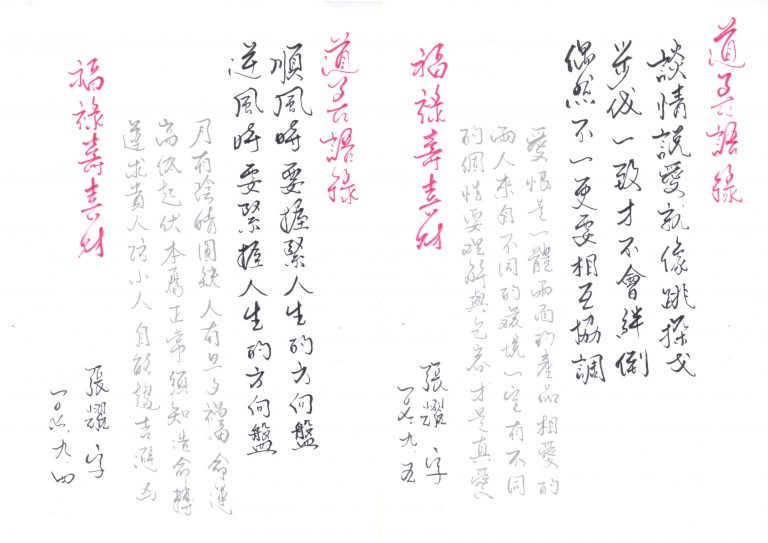 道善語錄
談情說愛就像跳探戈
步伐一致才不會絆倒
偶然不一更要相互協調
愛恨是一體兩面的產品相愛的
兩人來自不同的環境一定有不同
的個性要理解與包容才是真愛
福祿壽喜財
張耀字
一〇六.九.五
道善語錄
順風時要握緊人生的方向盤
逆風時要緊握人生的方向盤
月有陰晴圓缺人有旦夕禍福命運
高低起伏本屬正常須知造命轉
運求貴人防小人自能趨吉避凶
福祿壽喜財
張耀字
一〇六.九.四